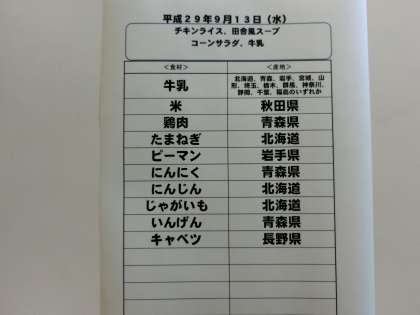 平成29年9月13日（水）
チキンライス、田舎風スープ
コーンサラダ、牛乳
＜食材＞ ＜産地＞
牛乳 北海道、青森、岩手、宮城、山
形、埼玉、栃木、群馬、神奈川、
静岡、千葉、福島のいずれか
米 秋田県
鶏肉 青森県
たまねぎ 北海道
ピーマン 岩手県
にんにく 青森県
にんじん 北海道
じゃがいも 北海道
いんげん 青森県
キャベツ 長野県